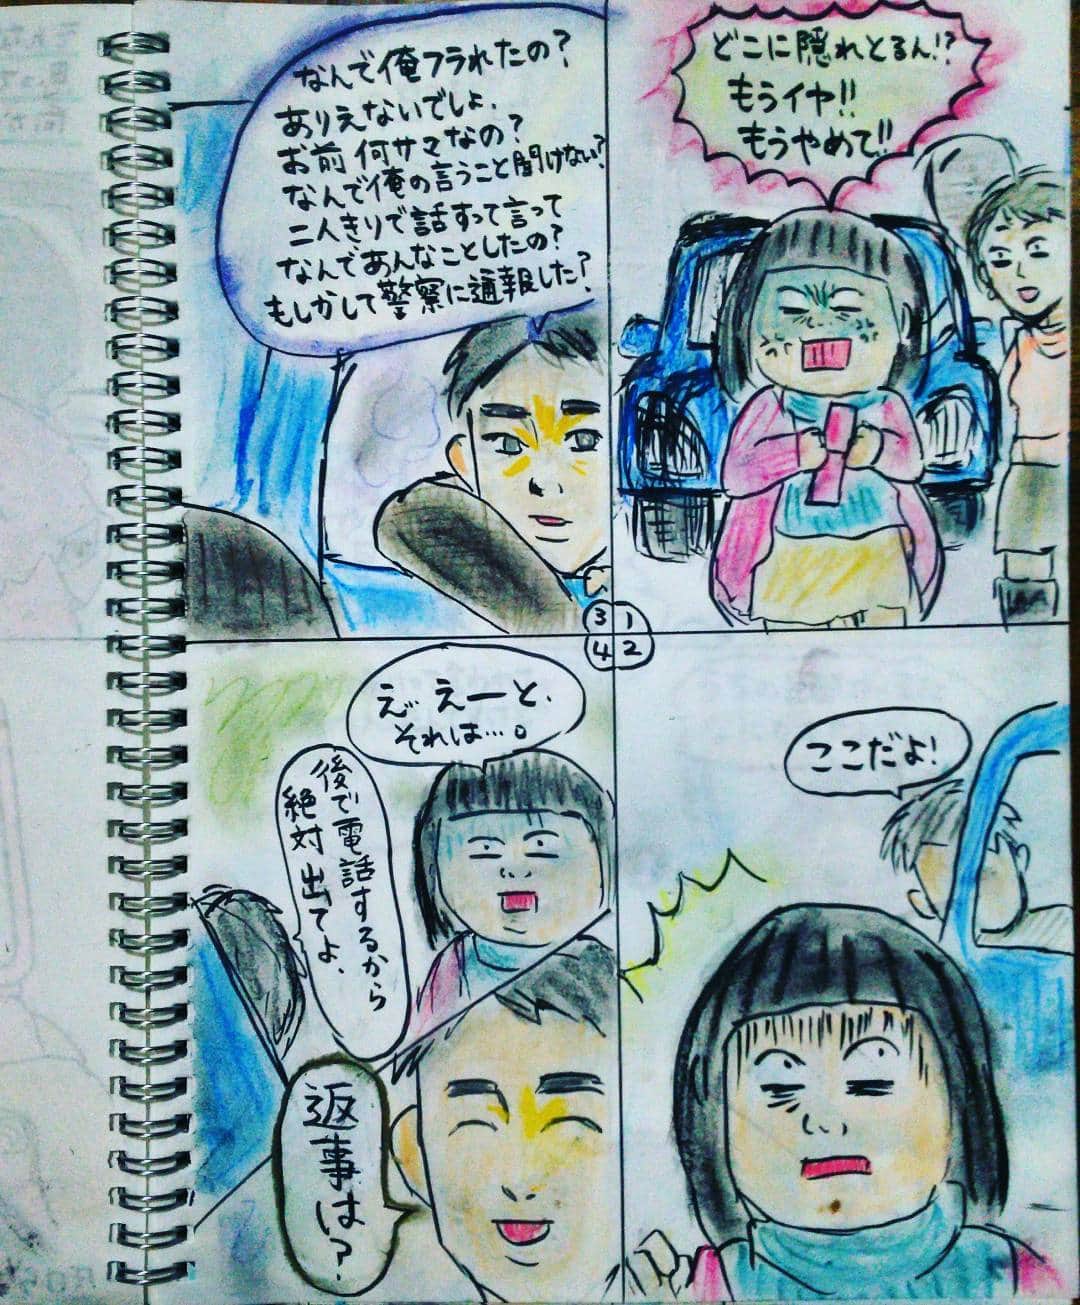 どこに隠れとるん!?
もうイヤ!!
もうやめて!!
1
ここだよ!
2
なんで俺フラれたの?
ありえないでしょ、
お前何サマなの?
なんで俺の言うこと聞けない?
二人きりで話すって言って
なんであんなことしたの?
もしかして警察に通報した?
3
え゛えーと、
それは…。
後で電話するから
絶対出てよ、
返事は?
4